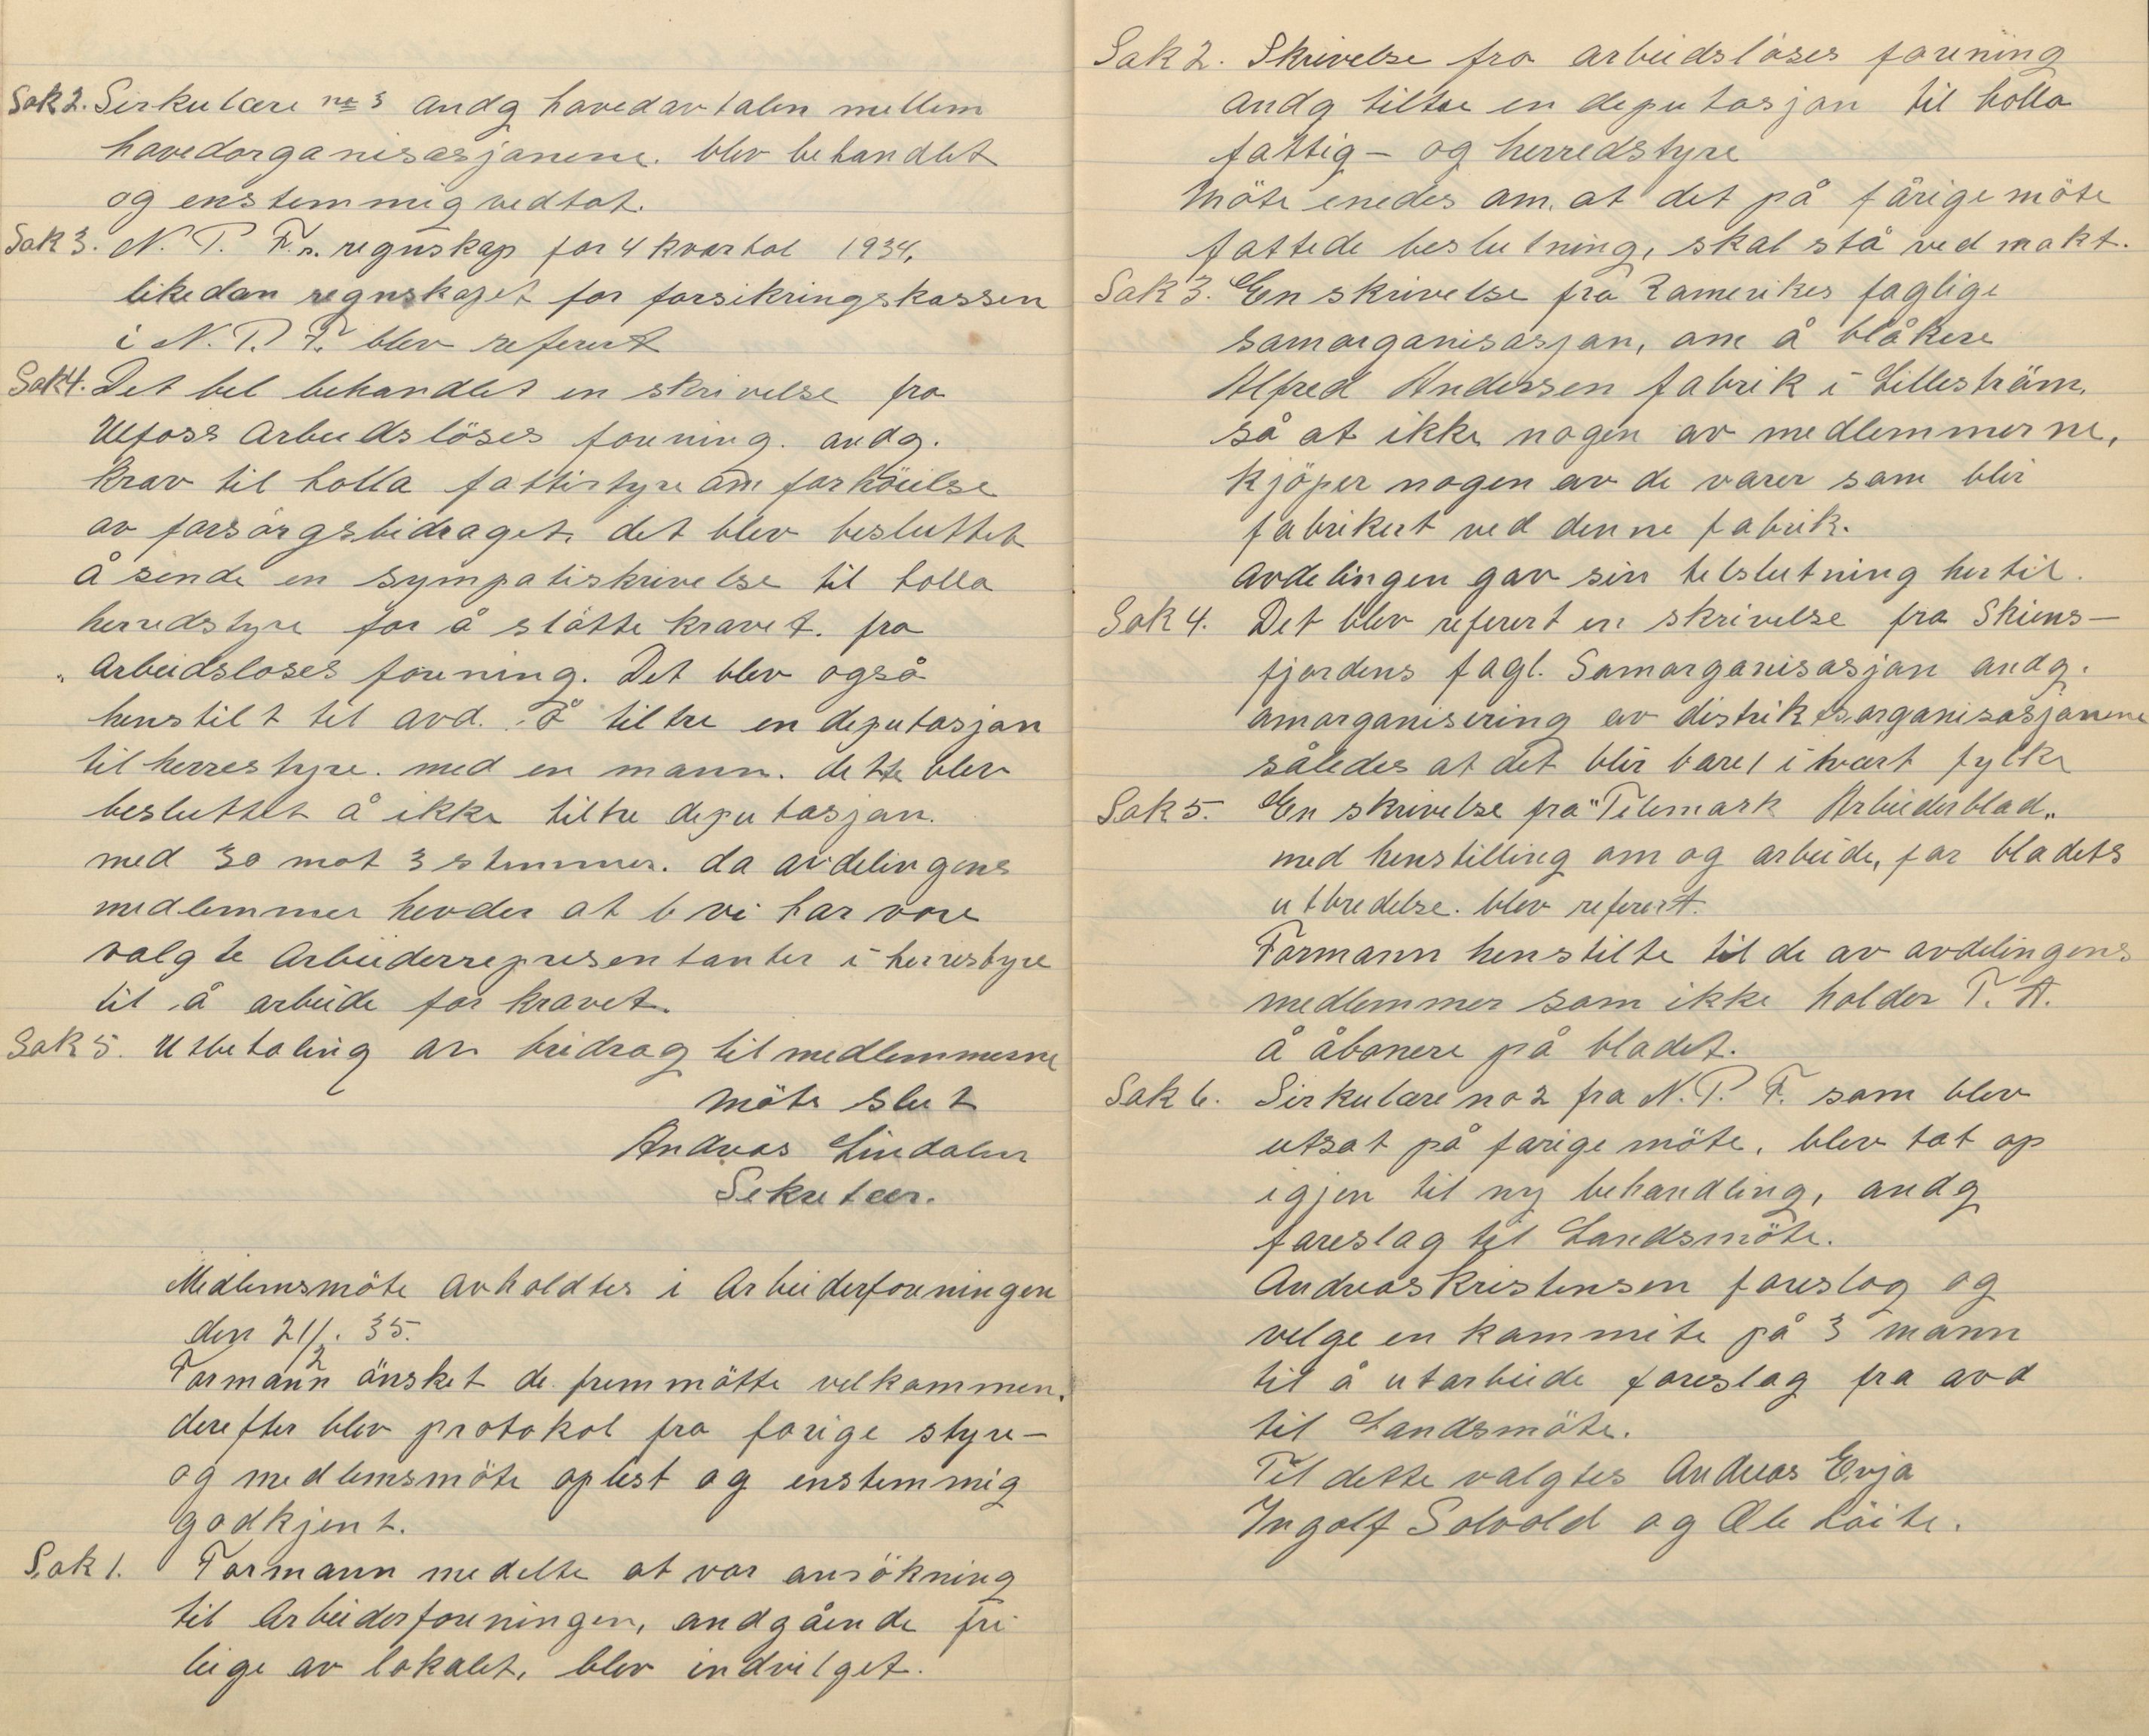 Sak 2. Sirkulære no 3 andg hovedavtalen mellem
hovedorganisasjonene. blev behandlet
og enstemmig vedtat.
Sak 3. N. P. F.s. regnskap for 4 kvartal 1934,
likedan regnskapet for forsikringskassen
i N. P. F. blev referert
Sak 4. Det bel behandlet en skrivelse fra
Ulfoss Arbeidslöses forening. andg.
krav til holla fattistyre om forhöielse
av forsörgsbidraget. det blev besluttet
å sende en sympatiskrivelse til holla
herredstyre for å stötte kravet. fra
Arbeidsloses forening. Det blev også
henstilt til avd. å tiltre en deputasjon
til herrestyre. med en mann. dette blev
besluttet å ikke tiltre deputasjon.
med 30 mot 3 stemmer. da avdelingens
medlemmer hevder at vi har vore
valgte Arbeiderrepresentanter i herrestyre
til å arbeide for kravet.
Sak 5. Utbetaling av bidrag til medlemmerne
möte slut
Andreas Lindalen
Sekretær.
Medlemsmöte avholdtes i Arbeiderforeningen
den 21/2. 35.
Formann önsket de fremmötte velkommen.
derefter blev protokol fra forige styre-
og medlemsmöte oplest og enstemmig
godkjent.
Sak 1. Formann medelte at vor ansökning
til Arbeiderforeningen, andgående fri
leige av lokalet, blev indvilget.
Sak 2. Skrivelse fra arbeidslöses forening
andg tiltre en deputasjon til holla
fattig- og herredstyre
Möte enedes om. at det på fårige möte
fattede beslutning, skal stå ved makt.
Sak 3. En skrivelse fra Romerikes faglige
samorganisasjon, om å blåkere
Alfred Andersen fabrik i Lilleström.
så at ikke nogen av medlemmerne,
kjöper nogen av de varer som blir
fabrikert ved denne fabrik.
Avdelingen gav sin telslutning hertil.
Sak 4. Det blev referert en skrivelse fra Skiens-
fjordens fagl. Samorganisasjon andg.
omorganisering av distriktsorganisasjonene
således at det blir bare 1 i hvert fylke
Sak 5. En skrivelse fra "Telemark Arbeiderblad„
med henstilling om og arbeide, for bladets
utbredelse. blev referert.
Formann henstilte til de av avdelingens
medlemmer som ikke holder T. A.
å åbonere på bladet.
Sak 6. Sirkulære no 2 fra N. P. F. som blev
utsat på forige möte, blev tat op
igjen til ny behandling, andg
foreslag til Landsmöte.
Andreas Kristensen foreslog og
velge en kommite på 3 mann
til å utarbeide foreslag fra avd
til Landsmöte.
Til dette valgtes Andreas Evja
Ingolf Solvold og Ole Löite.